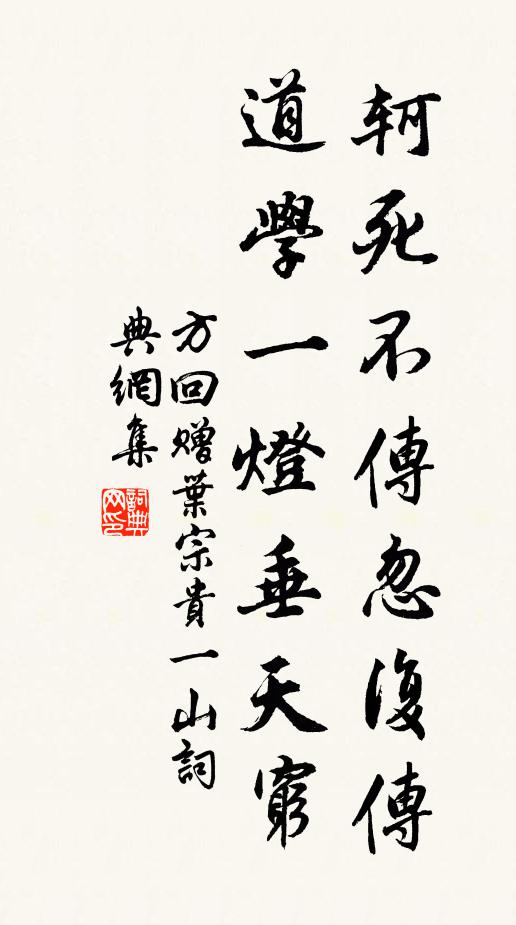 軻死不傳忽復傳
道學一燈垂天窮
方回贈葉宗貴一山詞
典網集
詞典
网印